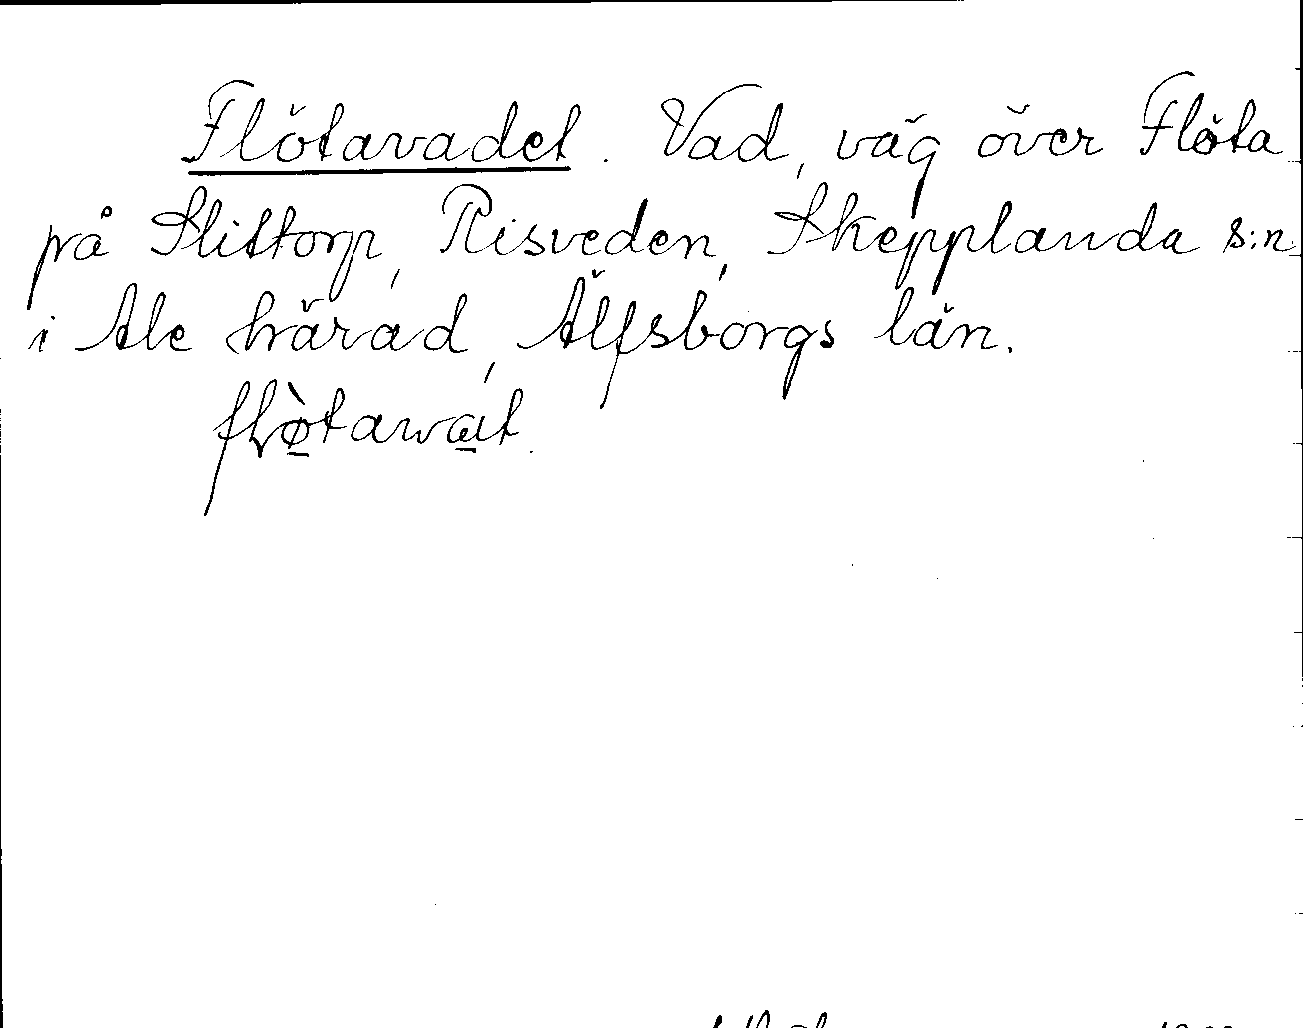 Flötavadet. Vad, väg över Flöta
på Slittorp, Risveden, Skepplanda s:n
i Ale härad, Älfsborgs län.